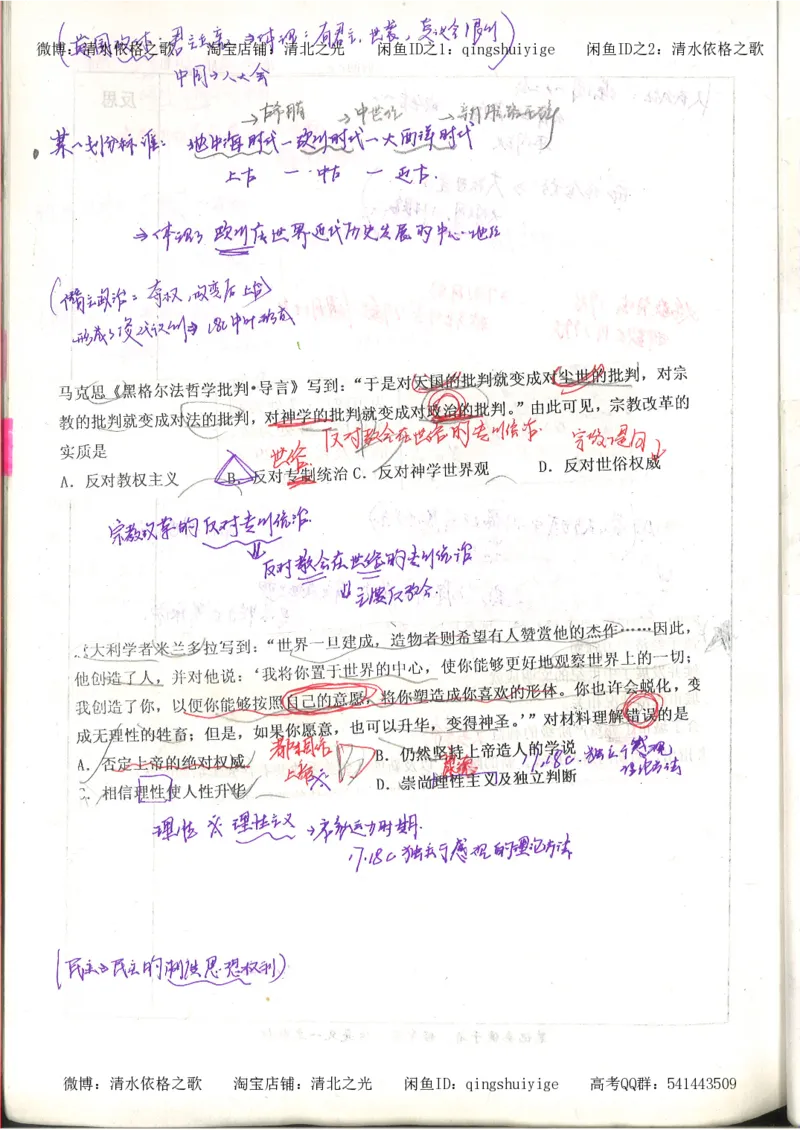 微博：清水依格之歌 淘宝店铺：清北之光 闲鱼ID之1：qingshuiyige 闲鱼ID之2：清水依格之歌
中国→人大会
→古希腊 →中世纪 →新航路
某一划分标准：地中海时代—欧洲时代—大西洋时代
上古 — 中古 — 近古.
→体现了欧洲在世界近代历史发展的中心地位
(僭主政治：夺权,政变后上台)
马克思《黑格尔法哲学批判•导言》写到：“于是对天国的批判就变成对尘世的批判，对宗
教的批判就变成对法的批判，对神学的批判就变成对政治的批判。”由此可见，宗教改革的
实质是
反对教会在世俗的专制统治.
世俗
A．反对教权主义 B．反对专制统治 C．反对神学世界观 D．反对世俗权威
宗教改革的反对专制统治.
反对教会在世俗的专制统治
主要反教会.
大利学者米兰多拉写到：“世界一旦建成，造物者则希望有人赞赏他的杰作……因此，
他创造了人，并对他说：‘我将你置于世界的中心，使你能够更好地观察世界上的一切；
我创造了你，以便你能够按照自己的意愿，将你塑造成你喜欢的形体。你也许会蜕化，变
成无理性的牲畜；但是，如果你愿意，也可以升华，变得神圣。’”对材料理解错误的是
A．否定上帝的绝对权威 B．仍然坚持上帝造人的学说
C．相信理性使人性升华 D．崇尚理性主义及独立判断
17.18C 独立于感观
理论方法
理性 ≠ 理性主义 →启蒙运动时期.
17.18C 独立于感观的理论方法
(民主≠民主的制度思想权利)
微博：清水依格之歌 淘宝店铺：清北之光 闲鱼ID：qingshuiyige 高考QQ群：541443509